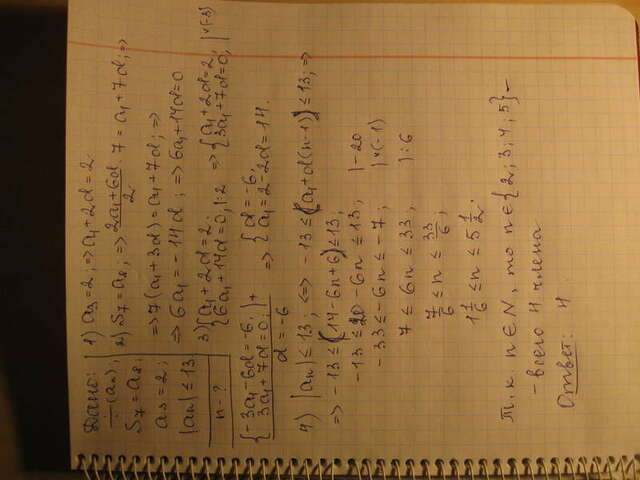 Дано:
÷(aₙ);
S₇ = a₈;
a₃ = 2;
|aₙ| ≤ 13
n - ?
1) a₃ = 2; ⇒ a₁ + 2d = 2.
2) S₇ = a₈; ⇒ (2a₁ + 6d)/2 · 7 = a₁ + 7d; ⇒
⇒ 7(a₁ + 3d) = a₁ + 7d; ⇒
⇒ 6a₁ = -14d; ⇒ 6a₁ + 14d = 0
3) { a₁ + 2d = 2; 6a₁ + 14d = 0, |:2 ⇒ { a₁ + 2d = 2; |×(-3) 3a₁ + 7d = 0;
{ -3a₁ - 6d = -6; 3a₁ + 7d = 0; | +
d = -6 ⇒ { d = -6; a₁ = 2 - 2d = 14.
4) |aₙ| ≤ 13; ⇔ -13 ≤ (a₁ + d(n-1)) ≤ 13; ⇒
⇒ -13 ≤ (14 - 6n + 6) ≤ 13;
-13 ≤ 20 - 6n ≤ 13; | -20
-33 ≤ -6n ≤ -7; | ×(-1)
7 ≤ 6n ≤ 33; | :6
7/6 ≤ n ≤ 33/6;
1 1/6 ≤ n ≤ 5 1/2.
Т.к. n ∈ N, то n ∈ {2; 3; 4; 5} -
- всего 4 члена
Ответ: 4